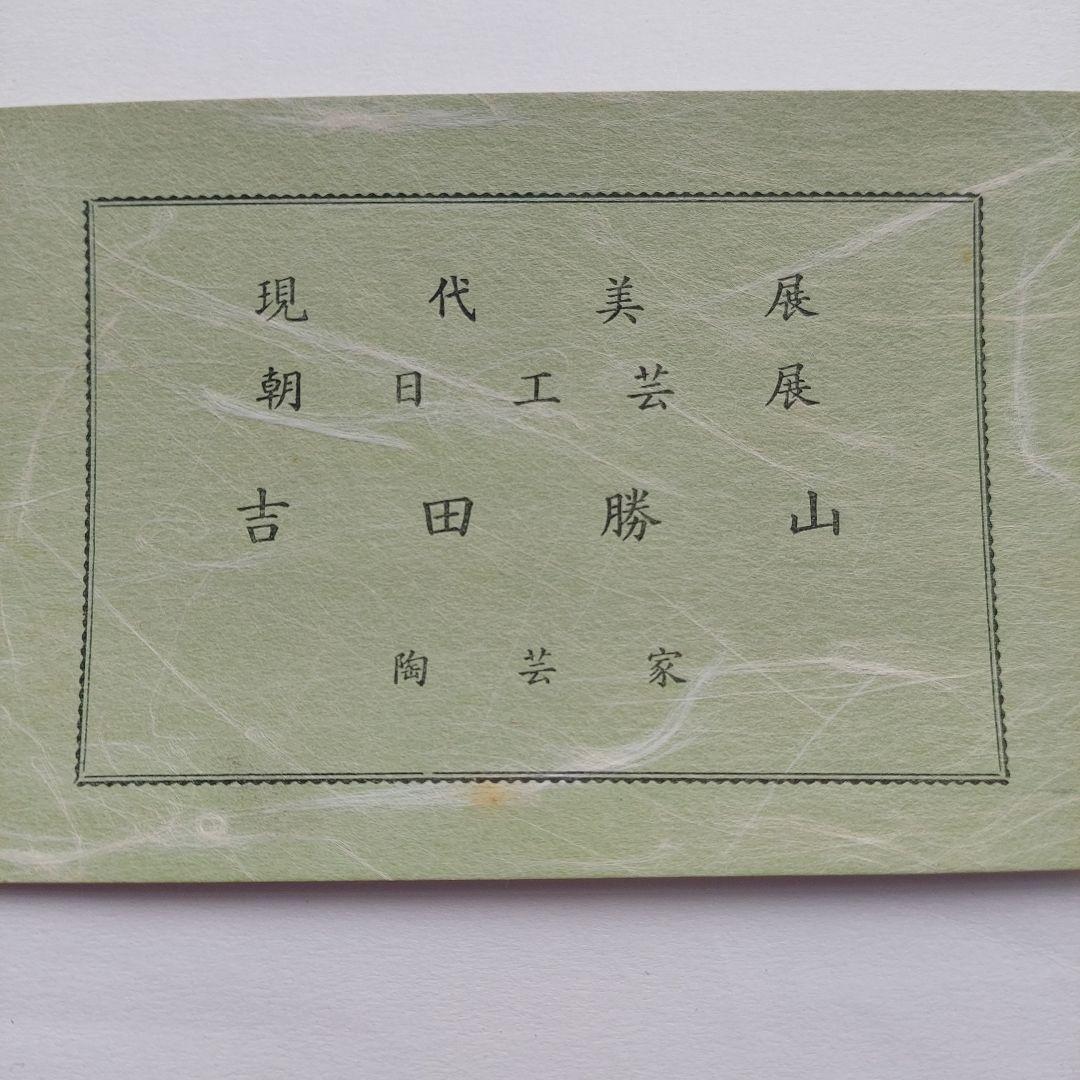 現代美展
朝日工芸展
吉田勝山
陶芸家